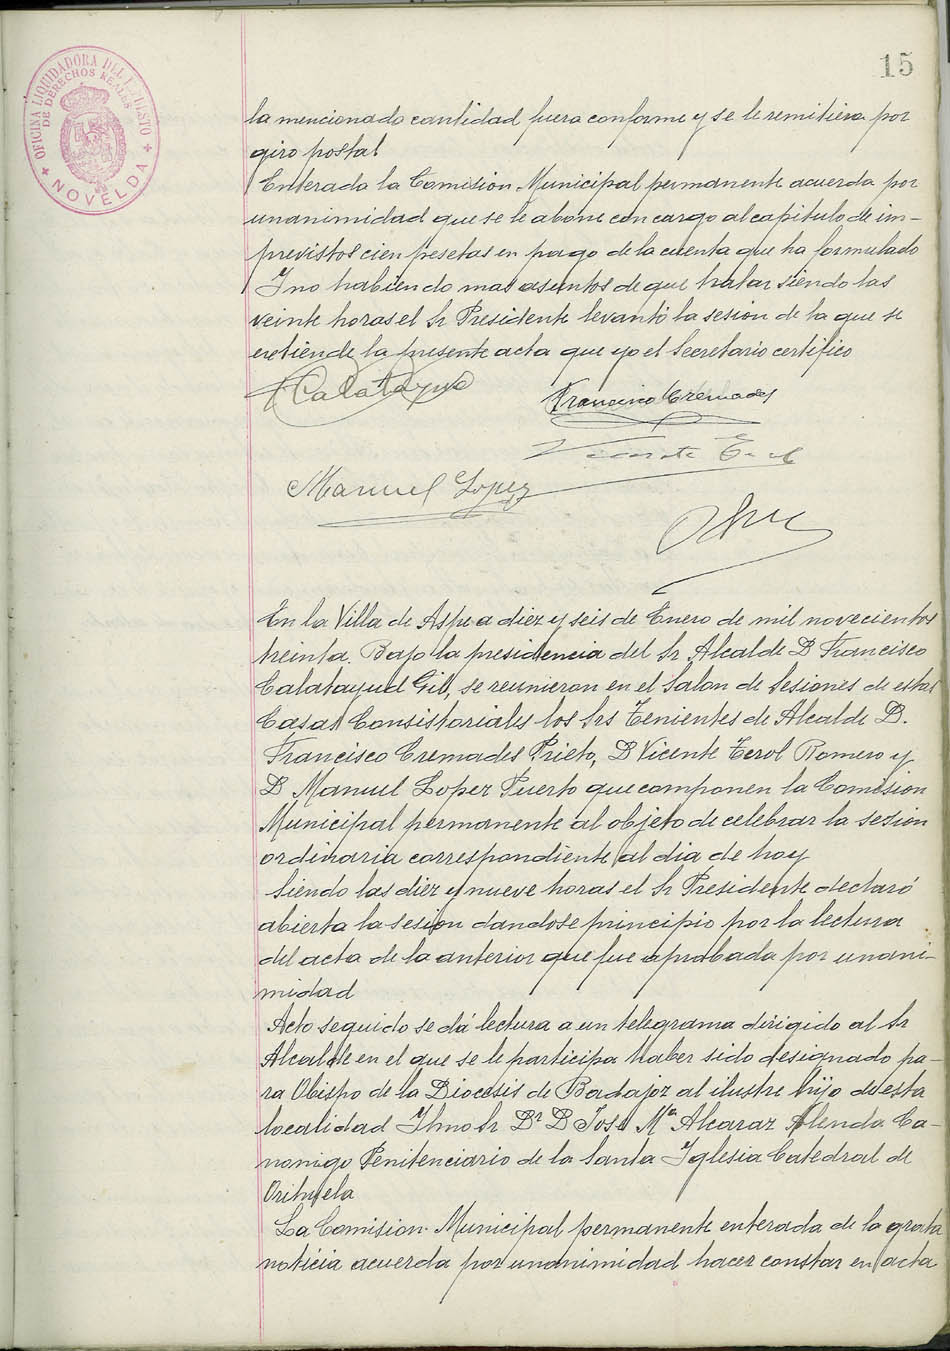 15
OFICINA LIQUIDADORA DEL IMPUESTO
DE DERECHOS REALES
NOVELDA
la mencionada cantidad fuera conforme y se le remitiera por
giro postal
Enterada la Comision Municipal permanente acuerda por
unanimidad que se le abone con cargo al capitulo de im-
previstos cien pesetas en pago de la cuenta que ha formulado
Y no habiendo mas asuntos de que tratar siendo las
veinte horas el Sr Presidente levantó la sesion de la que se
extiende la presente acta que yo el Secretario certifico
F Calatayud
Francisco Cremades
Vicente Terol
Manuel Lopez
En la Villa de Aspe a diez y seis de Enero de mil novecientos
treinta. Bajo la presidencia del Sr Alcalde D Francisco
Calatayud Gil, se reunieron en el Salon de Sesiones de estas
Casas Consistoriales los Srs Tenientes de Alcalde D.
Francisco Cremades Prieto, D Vicente Terol Romero y
D Manuel Lopez Puerto que componen la Comision
Municipal permanente al objeto de celebrar la sesion
ordinaria correspondiente al dia de hoy
Siendo las diez y nueve horas el Sr Presidente declaró
abierta la sesion dandose principio por la lectura
del acta de la anterior que fue aprobada por unani-
midad
Acto seguido se dá lectura a un telegrama dirigido al Sr
Alcalde en el que se le participa haber sido designado pa-
ra Obispo de la Diocesis de Badajoz al ilustre hijo de esta
localidad Ilmo Sr Dr D Jose Mª Alcaraz Alenda Ca-
nonigo Penitenciario de la Santa Iglesia Catedral de
Orihuela
La Comision Municipal permanente enterada de la grata
noticia acuerda por unanimidad hacer constar en acta